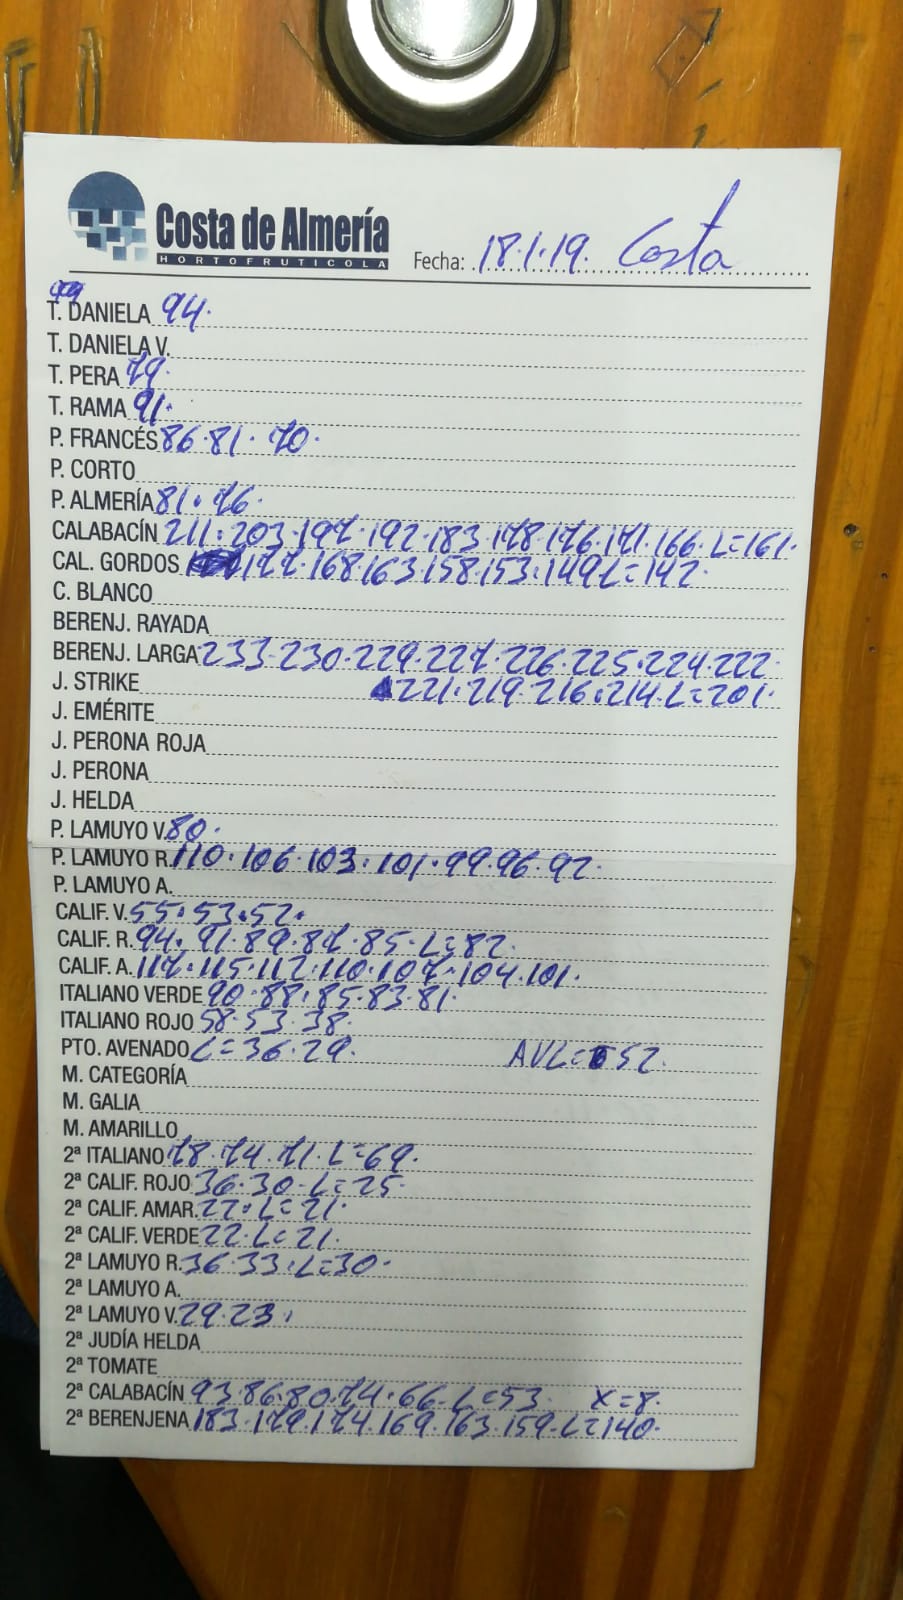 Costa de Almería
HORTOFRUTICOLA
Fecha: 18.1.19. Costa
T. DANIELA 94.
T. DANIELA V.
T. PERA 79.
T. RAMA 91.
P. FRANCÉS 86.81.70.
P. CORTO
P. ALMERÍA 81.76.
CALABACÍN 211.203.197.192.183.178.176.171.166.L=161.
CAL. GORDOS 177.168.163.158.153.149L=142.
C. BLANCO
BERENJ. RAYADA
BERENJ. LARGA 233.230.229.227.226.225.224.222
J. STRIKE 221.219.216.214.L=201.
J. EMÉRITE
J. PERONA ROJA
J. PERONA
J. HELDA
P. LAMUYO V. 80.
P. LAMUYO R. 110.106.103.101.99.96.92.
P. LAMUYO A.
CALIF. V. 55.53.52.
CALIF. R. 94.91.89.87.85.L=82.
CALIF. A. 117.115.112.110.107.104.101.
ITALIANO VERDE 90.88.85.83.81.
ITALIANO ROJO 58.53.38.
PTO. AVENADO L=36.29. AVL=52.
M. CATEGORÍA
M. GALIA
M. AMARILLO
2ª ITALIANO 78.74.71.L=69.
2ª CALIF. ROJO 36.30.L=25.
2ª CALIF. AMAR. 22.L=21.
2ª CALIF. VERDE 22.L=21.
2ª LAMUYO R. 36.33.L=30.
2ª LAMUYO A.
2ª LAMUYO V. 29.23.
2ª JUDÍA HELDA
2ª TOMATE
2ª CALABACÍN 93.86.80.74.66.L=53. X=8.
2ª BERENJENA 183.179.174.169.163.159.L=140.